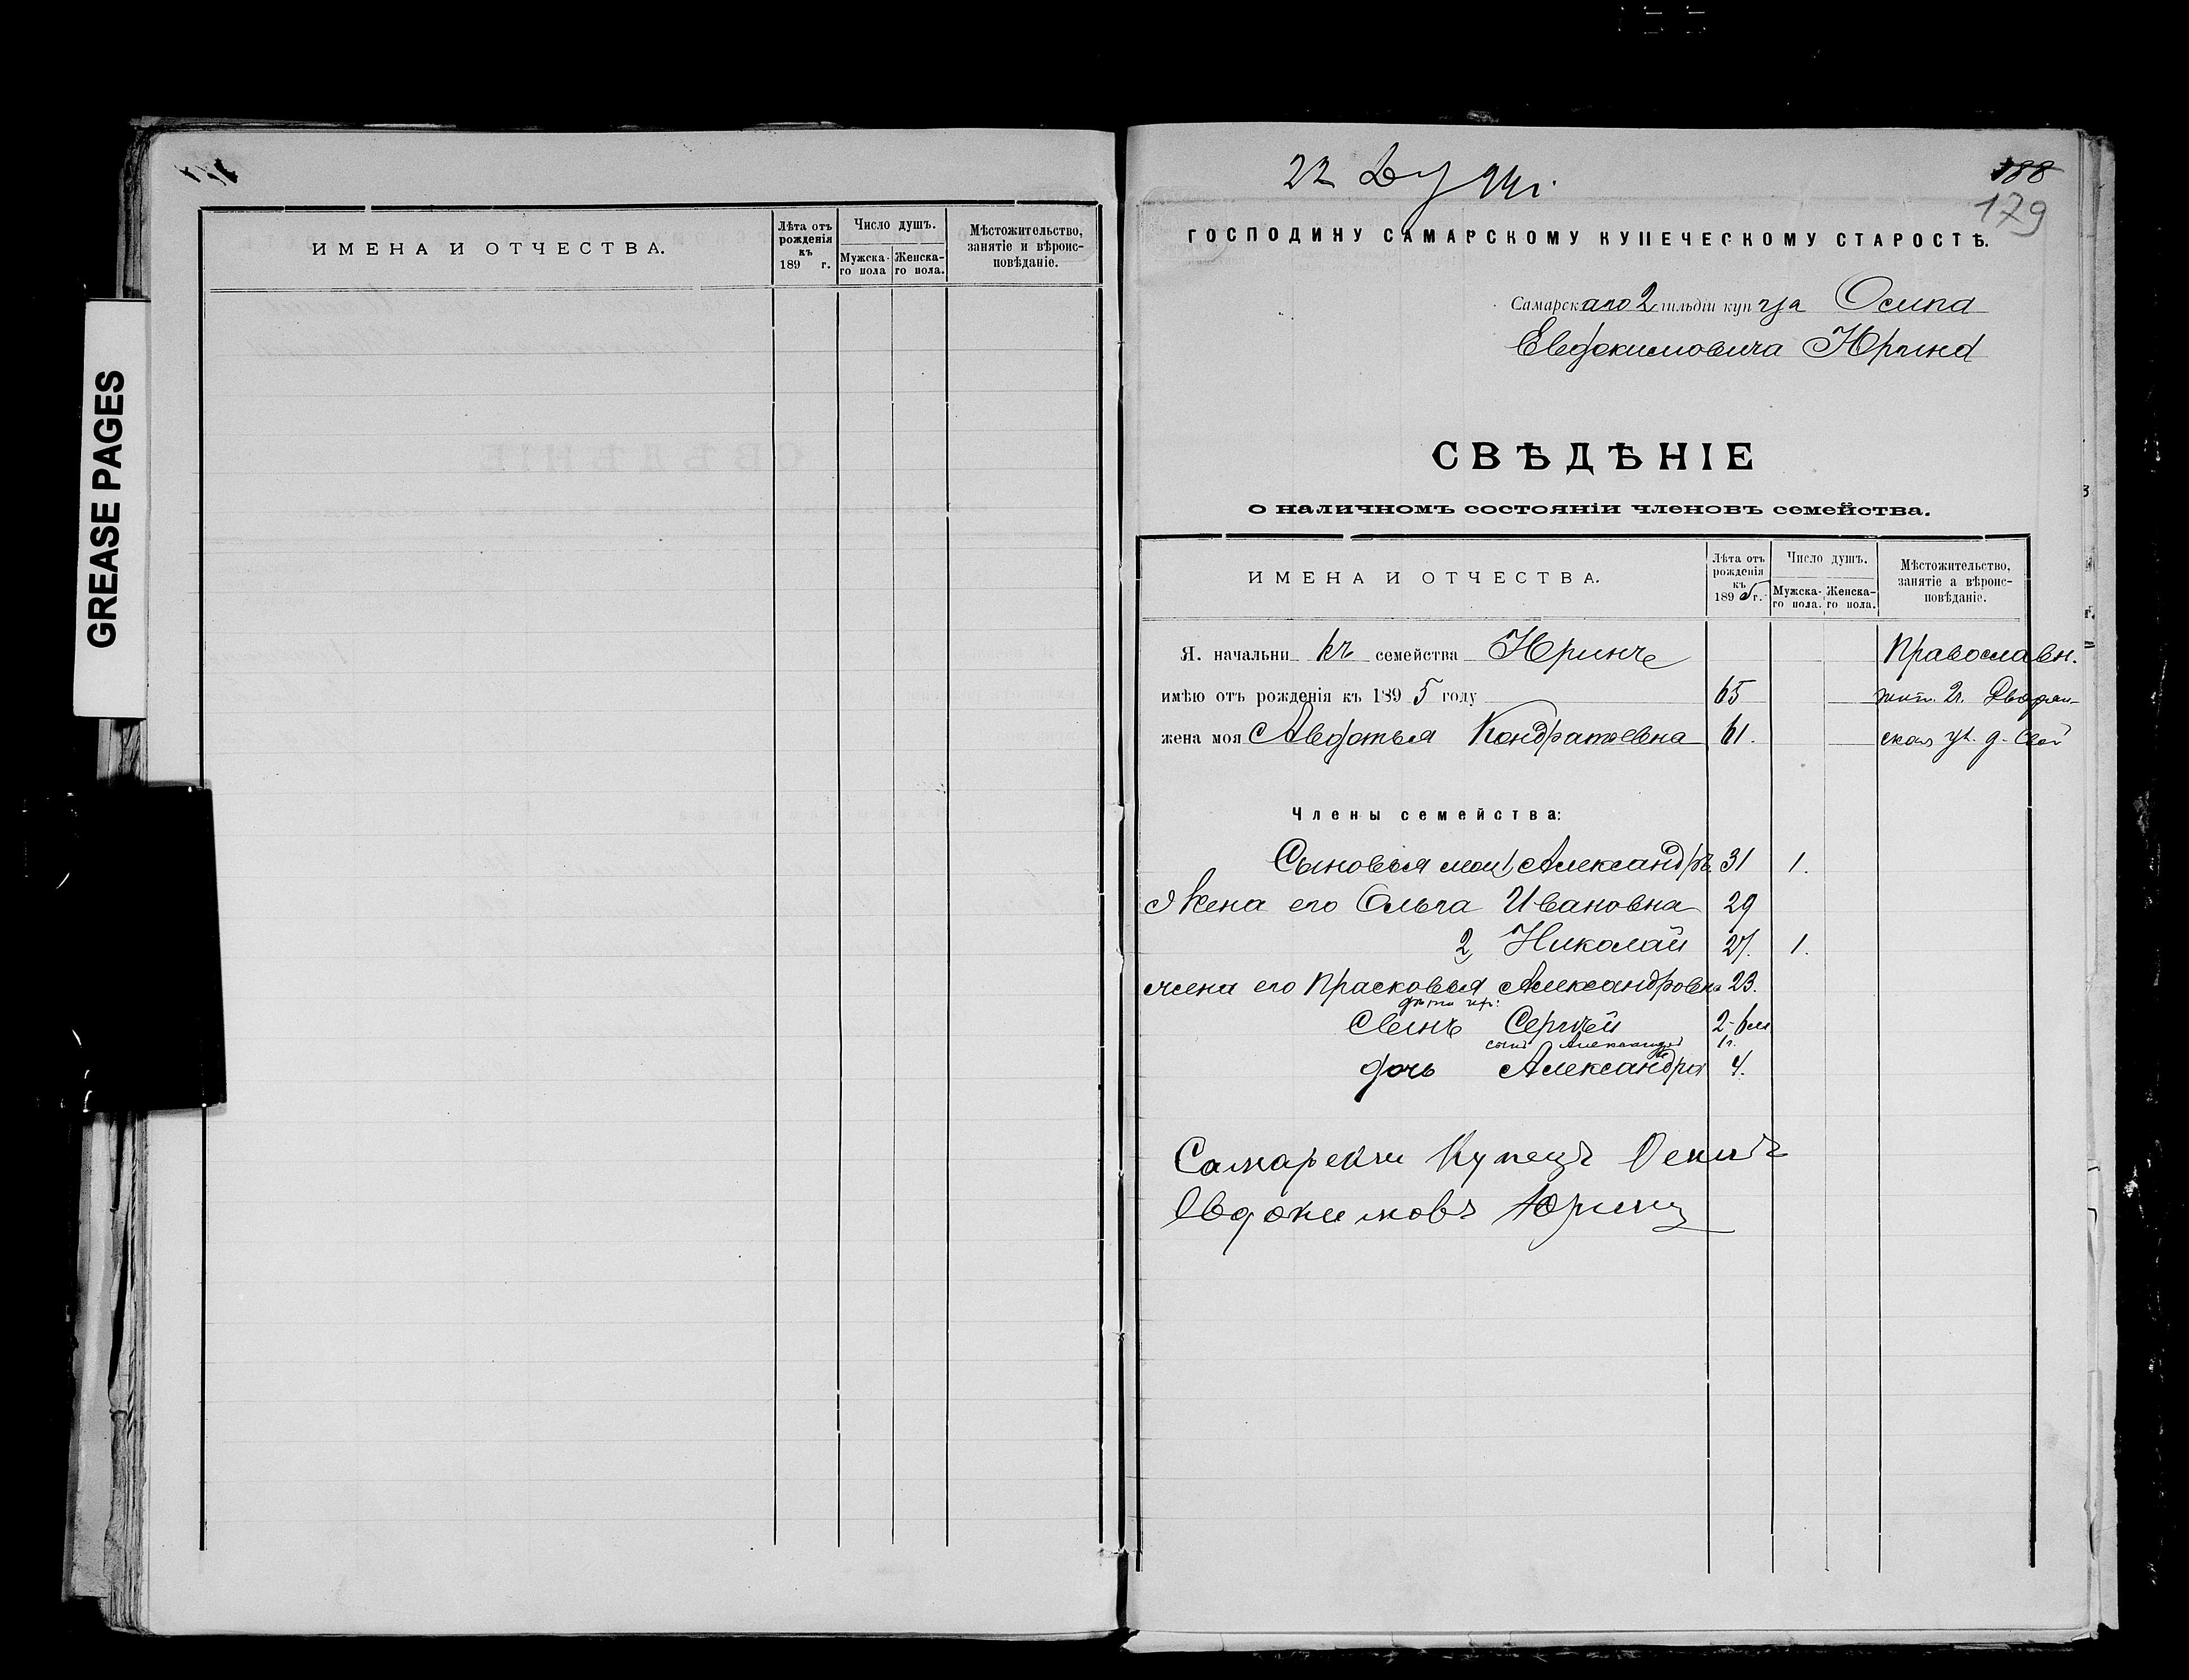 GREASE PAGES
ИМЕНА И ОТЧЕСТВА.
Лѣта отъ рожденія къ 189 г.
Число душъ.
Мужска-го пола
Женска-го пола.
Мѣстожительство, занятіе и вѣроис-повѣданіе.
22
188
179
ГОСПОДИНУ САМАРСКОМУ КУПЕЧЕСКОМУ СТАРОСТѢ.
Самарскаго 2 гильдіи купца Осипа
Евдокимовича Юрина
СВѢДѢНІЕ
о наличномъ состояніи членовъ семейства.
ИМЕНА И ОТЧЕСТВА.
Лѣта отъ рожденія къ 1895 г.
Число душъ.
Мужска-го пола.
Женска-го пола.
Мѣстожительство, занятіе а вѣроис-повѣданіе.
Я. начальникъ семейства Юринъ Православн.
имѣю отъ рожденія къ 1895 году 65 Дворян-
жена моя Авдотья Кондратьевна 61. ская ул. д. Свой
Члены семейства:
Сыновья мои 1, Александръ 31 1.
Жена его Ольга Ивановна 29
2, Николай 27. 1.
жена его Прасковья Александровна 23.
дѣти их:
Сынъ Сергѣй 2-6 м
сынъ Александръ 1 г.
дочь Александра 4.
Самарски Купецъ Осипъ
Евдокимовъ Юринъ